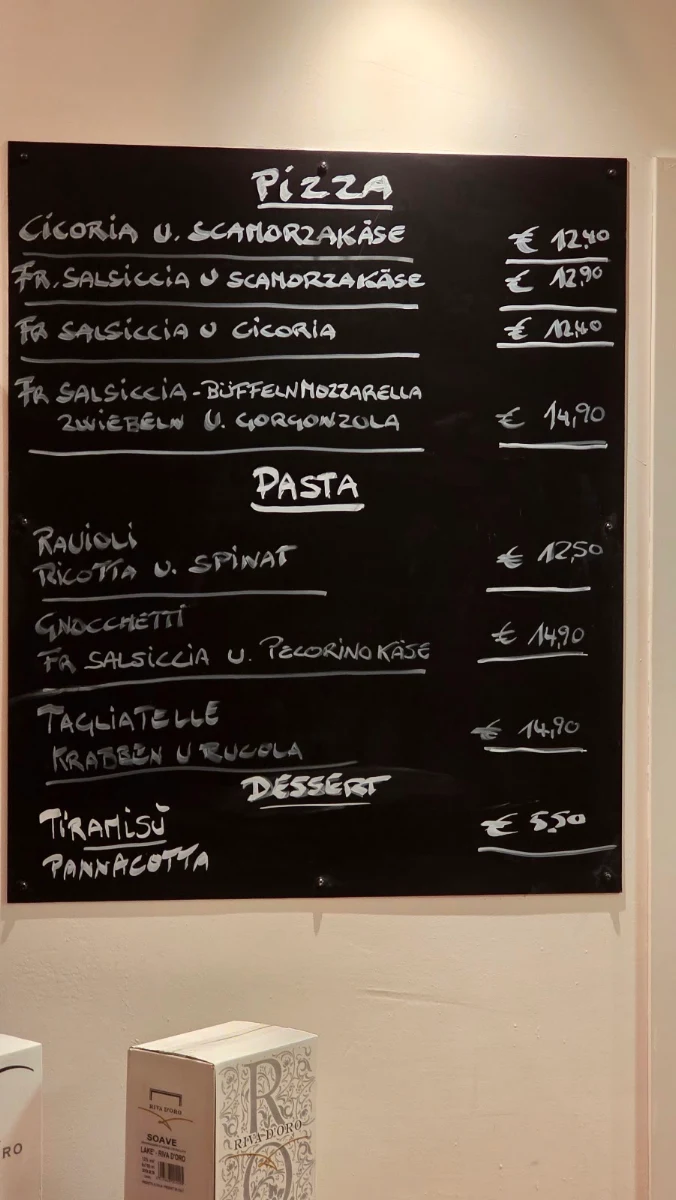 PiZZA
CiCORiA U. SCAMORZAKÄSE € 12,40
FR. SALSiCCiA U SCAMORZAKÄSE € 12,90
FR SALSiCCiA U CiCORiA € 12,40
FR SALSiCCiA - BÜFFELNMOZZARELLA
ZWiEBELN U. GORGONZOLA € 14,90
PASTA
RAViOLi
RiCOTTA U. SPiNAT € 12,50
GNOCCHETTi
FR SALSiCCiA U. PECORiNO KÄSE € 14,90
TAGLiATELLE
KRABBEN U RUCOLA € 14,90
DESSERT
TiRAMiSÙ € 5,50
PANNACOTTA
RIVA D'ORO
SOAVE
LAKE - RIVA D'ORO
R
RIVA D'ORO
RO